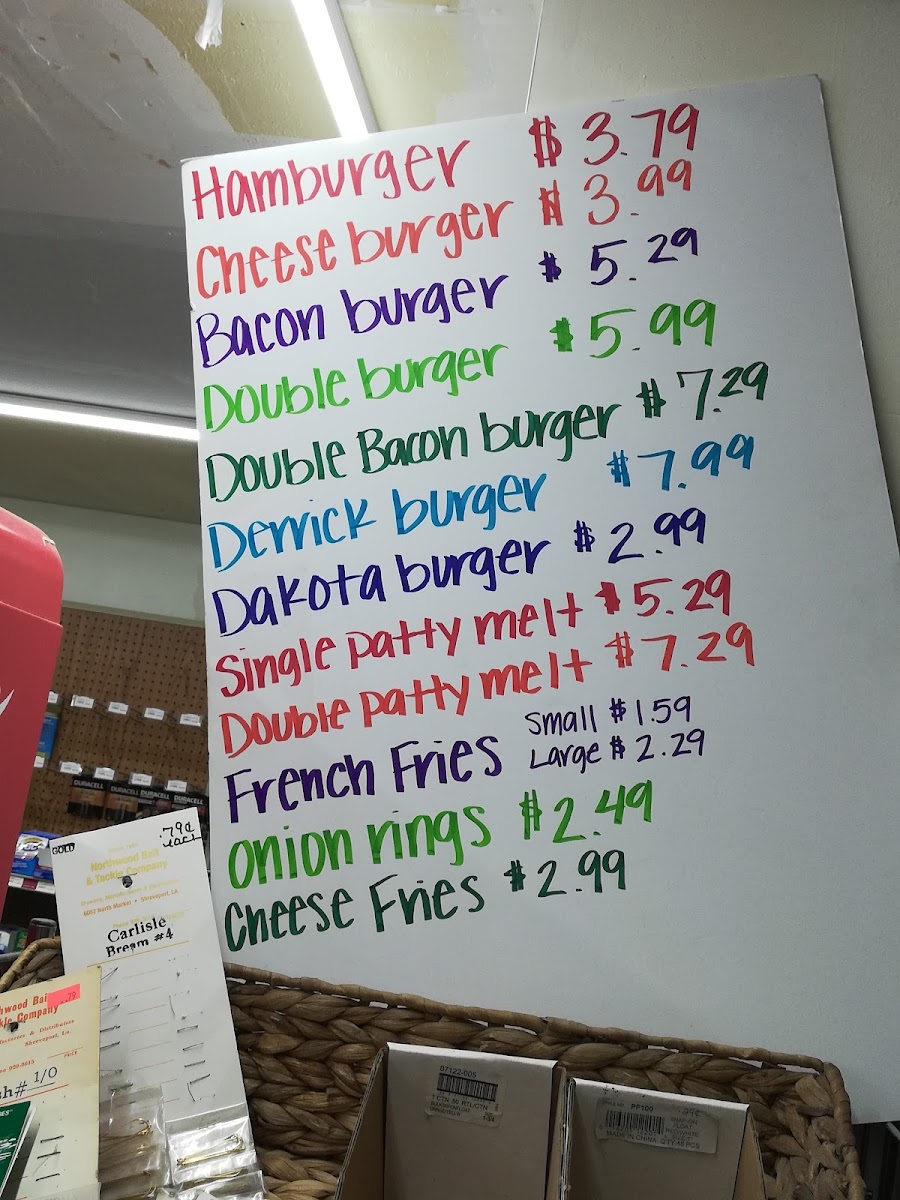 Hamburger $ 3.79
Cheese burger $ 3.99
Bacon burger $ 5.29
Double burger $ 5.99
Double Bacon burger $ 7.29
Derrick burger $ 7.99
Dakota burger $ 2.99
Single patty melt $ 5.29
Double patty melt $ 7.29
French Fries Small $ 1.59
Large $ 2.29
Onion rings $ 2.49
Cheese Fries $ 2.99
DURACELL DURACELL DURACELL
GOLD
.79¢
each
Northwood Bait
& Tackle Company
6052 North Market • Shreveport, LA
Carlisle
Bream #4
hwood Bai
kle Company
.79
Shreveport, La.
PRICE
sh# 1/0
07122-005
1 CTN 50 RTL/CTN
PF100
MADE IN CHINA